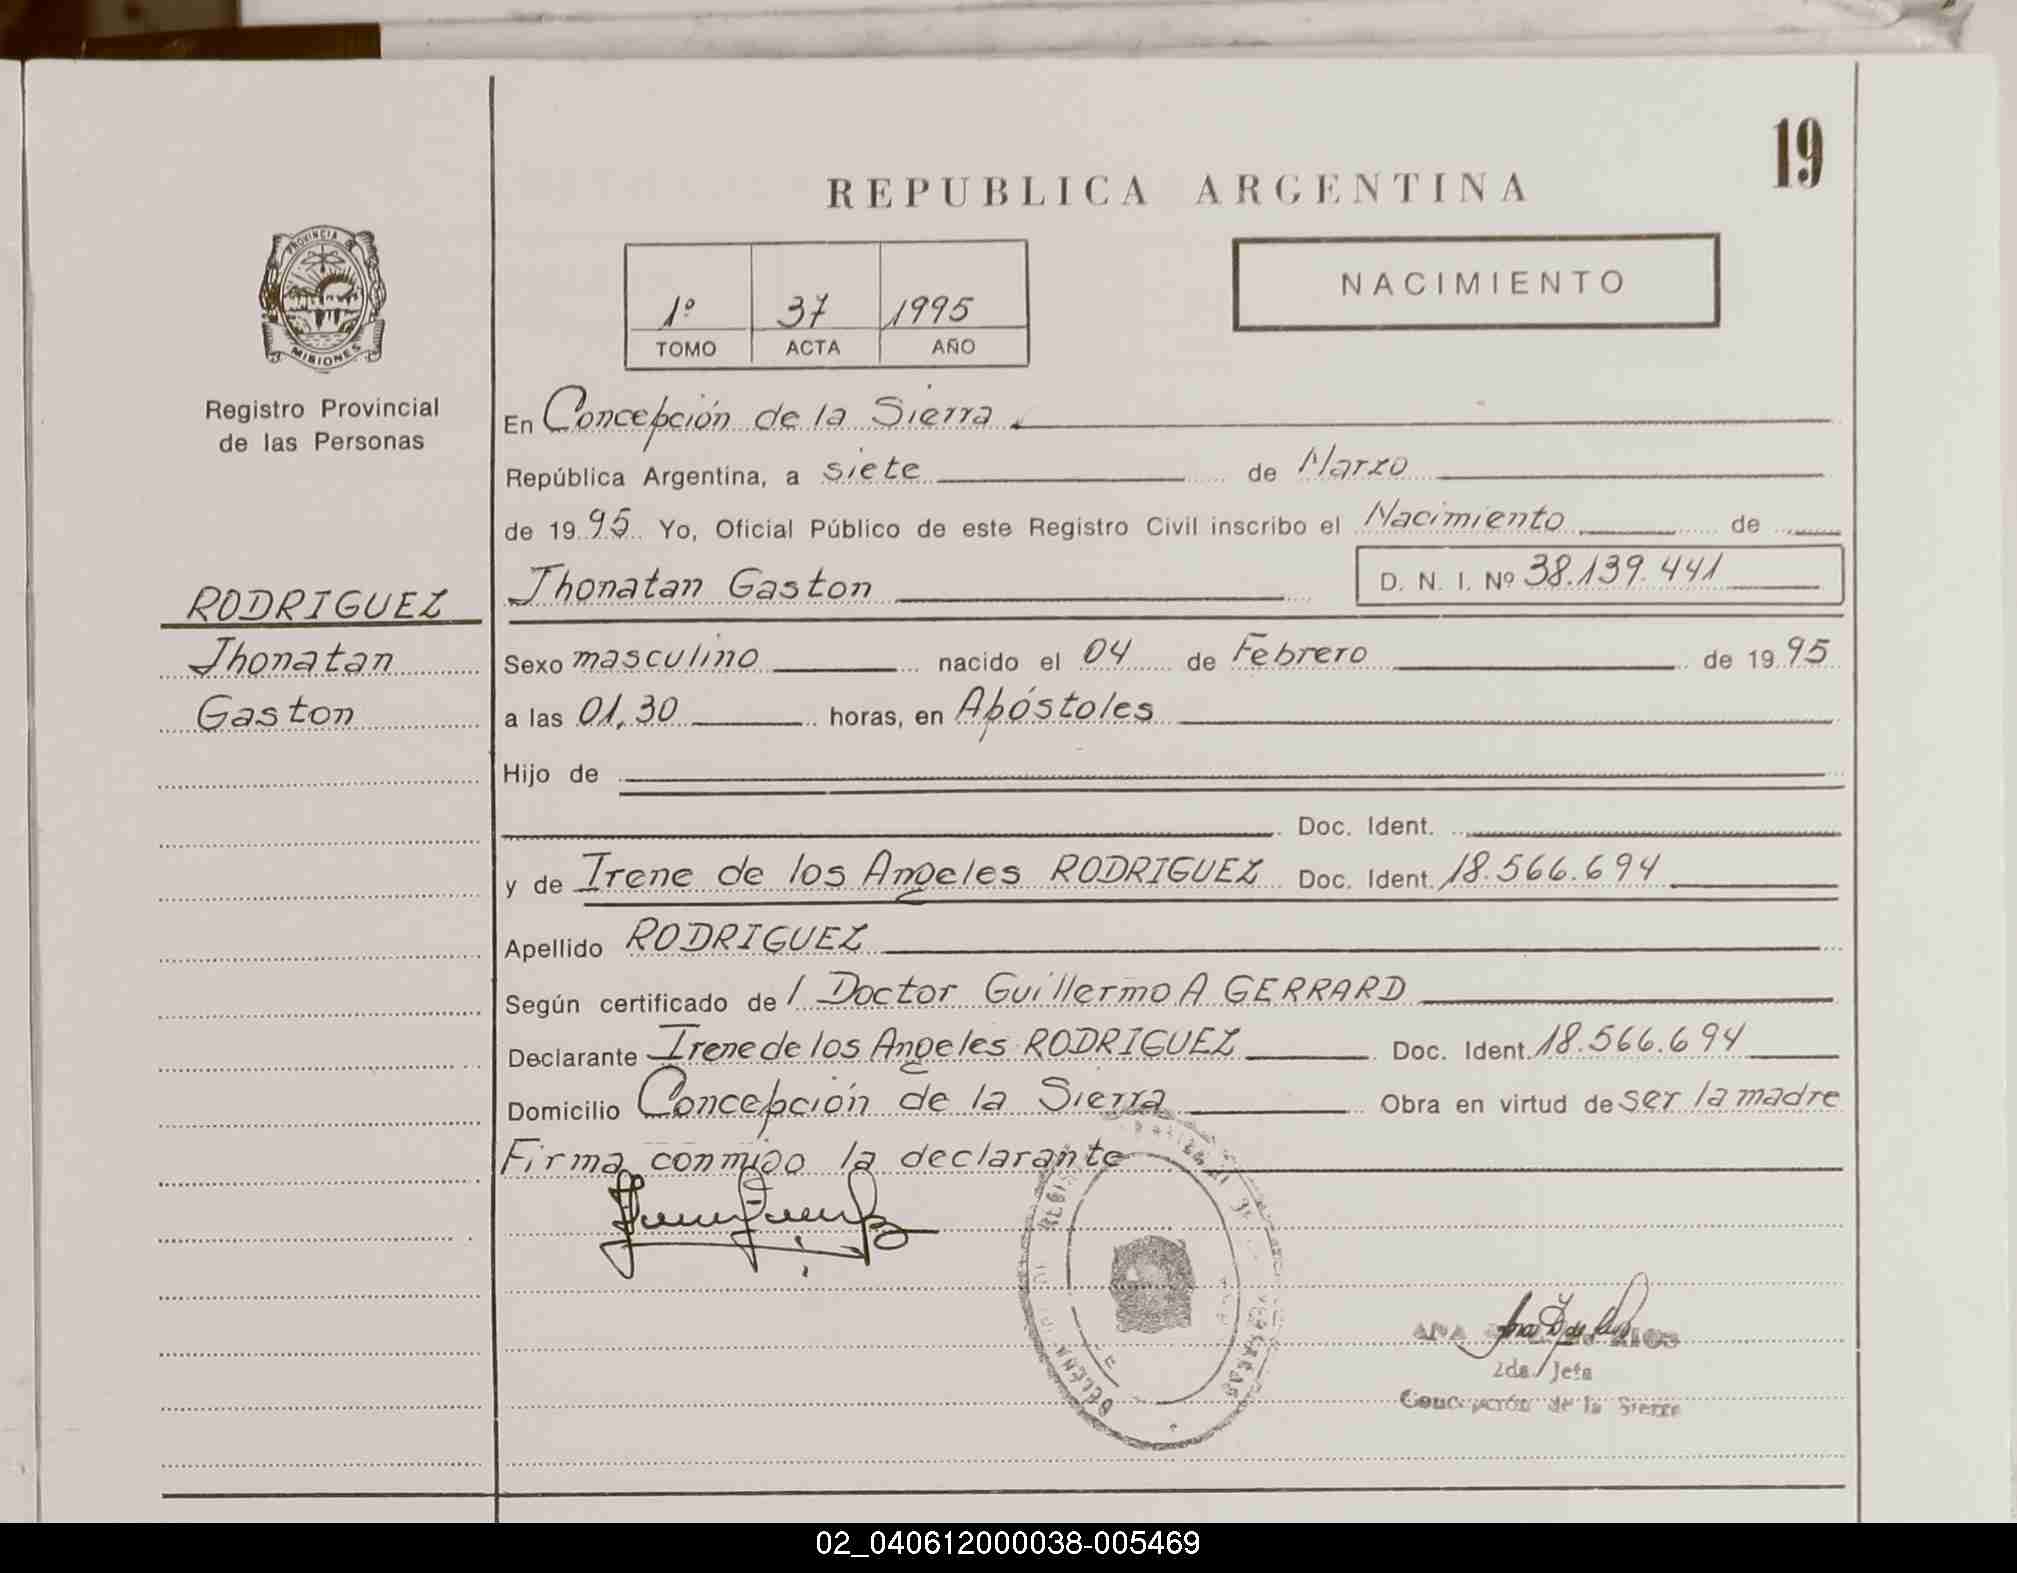 19
REPUBLICA ARGENTINA
PROVINCIA DE
MISIONES
1º 37 1995
TOMO ACTA AÑO
NACIMIENTO
Registro Provincial
de las Personas
RODRIGUEZ
Jhonatan
Gaston
En Concepción de la Sierra
República Argentina, a siete de Marzo
de 1995 Yo, Oficial Público de este Registro Civil inscribo el Nacimiento de
Jhonatan Gaston D. N. I. Nº 38.139.441
Sexo masculino nacido el 04 de Febrero de 1995
a las 01,30 horas, en Apóstoles
Hijo de
Doc. Ident.
y de Irene de los Angeles RODRIGUEZ Doc. Ident. 18.566.694
Apellido RODRIGUEZ
Según certificado de / Doctor Guillermo A GERRARD
Declarante Irene de los Angeles RODRIGUEZ Doc. Ident. 18.566.694
Domicilio Concepción de la Sierra Obra en virtud de ser la madre
Firma conmigo la declarante
ANA RIOS
2da Jefa
Concepción de la Sierra
02_040612000038-005469